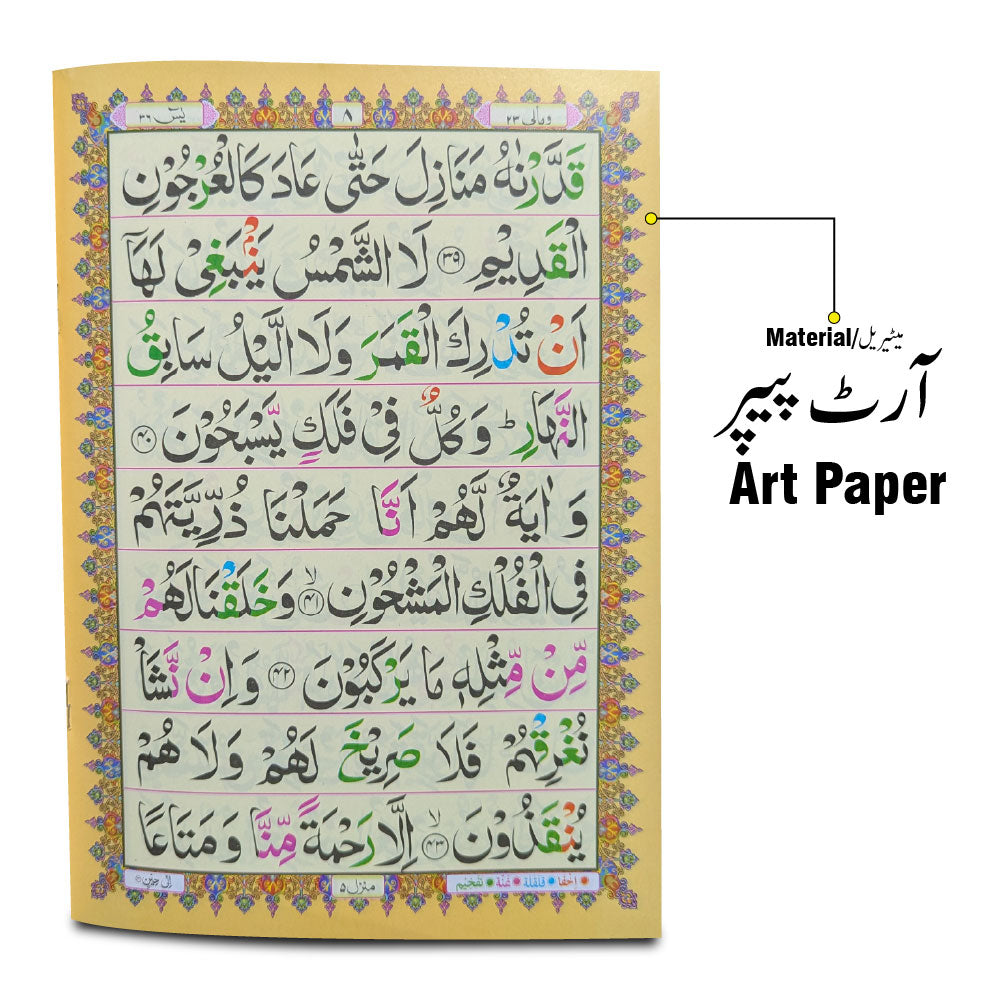 ومالی ۲۳
۸
یٰسٓ ۳۶
قَدَّرْنٰهُ مَنَازِلَ حَتّٰی عَادَ کَالْعُرْجُوْنِ
الْقَدِیْمِ ﴿۳۹﴾ لَا الشَّمْسُ یَنْۢبَغِیْ لَهَاۤ
اَنْ تُدْرِكَ الْقَمَرَ وَلَا الَّیْلُ سَابِقُ
النَّهَارِ ؕ وَکُلٌّ فِیْ فَلَكٍ یَّسْبَحُوْنَ ﴿۴۰﴾
وَ اٰیَةٌ لَّهُمْ اَنَّا حَمَلْنَا ذُرِّیَّتَهُمْ
فِی الْفُلْكِ الْمَشْحُوْنِ ۙ﴿۴۱﴾ وَخَلَقْنَا لَهُمْ
مِّنْ مِّثْلِهٖ مَا یَرْکَبُوْنَ ﴿۴۲﴾ وَاِنْ نَّشَاْ
نُغْرِقْهُمْ فَلَا صَرِیْخَ لَهُمْ وَلَا هُمْ
یُنْقَذُوْنَ ۙ﴿۴۳﴾ اِلَّا رَحْمَةً مِّنَّا وَمَتَاعًا
اخفا قلقلة غنة تفخيم
منزل ۵
اِلٰی حِیْنٍ
Material/میٹیریل
آرٹ پیپر
Art Paper